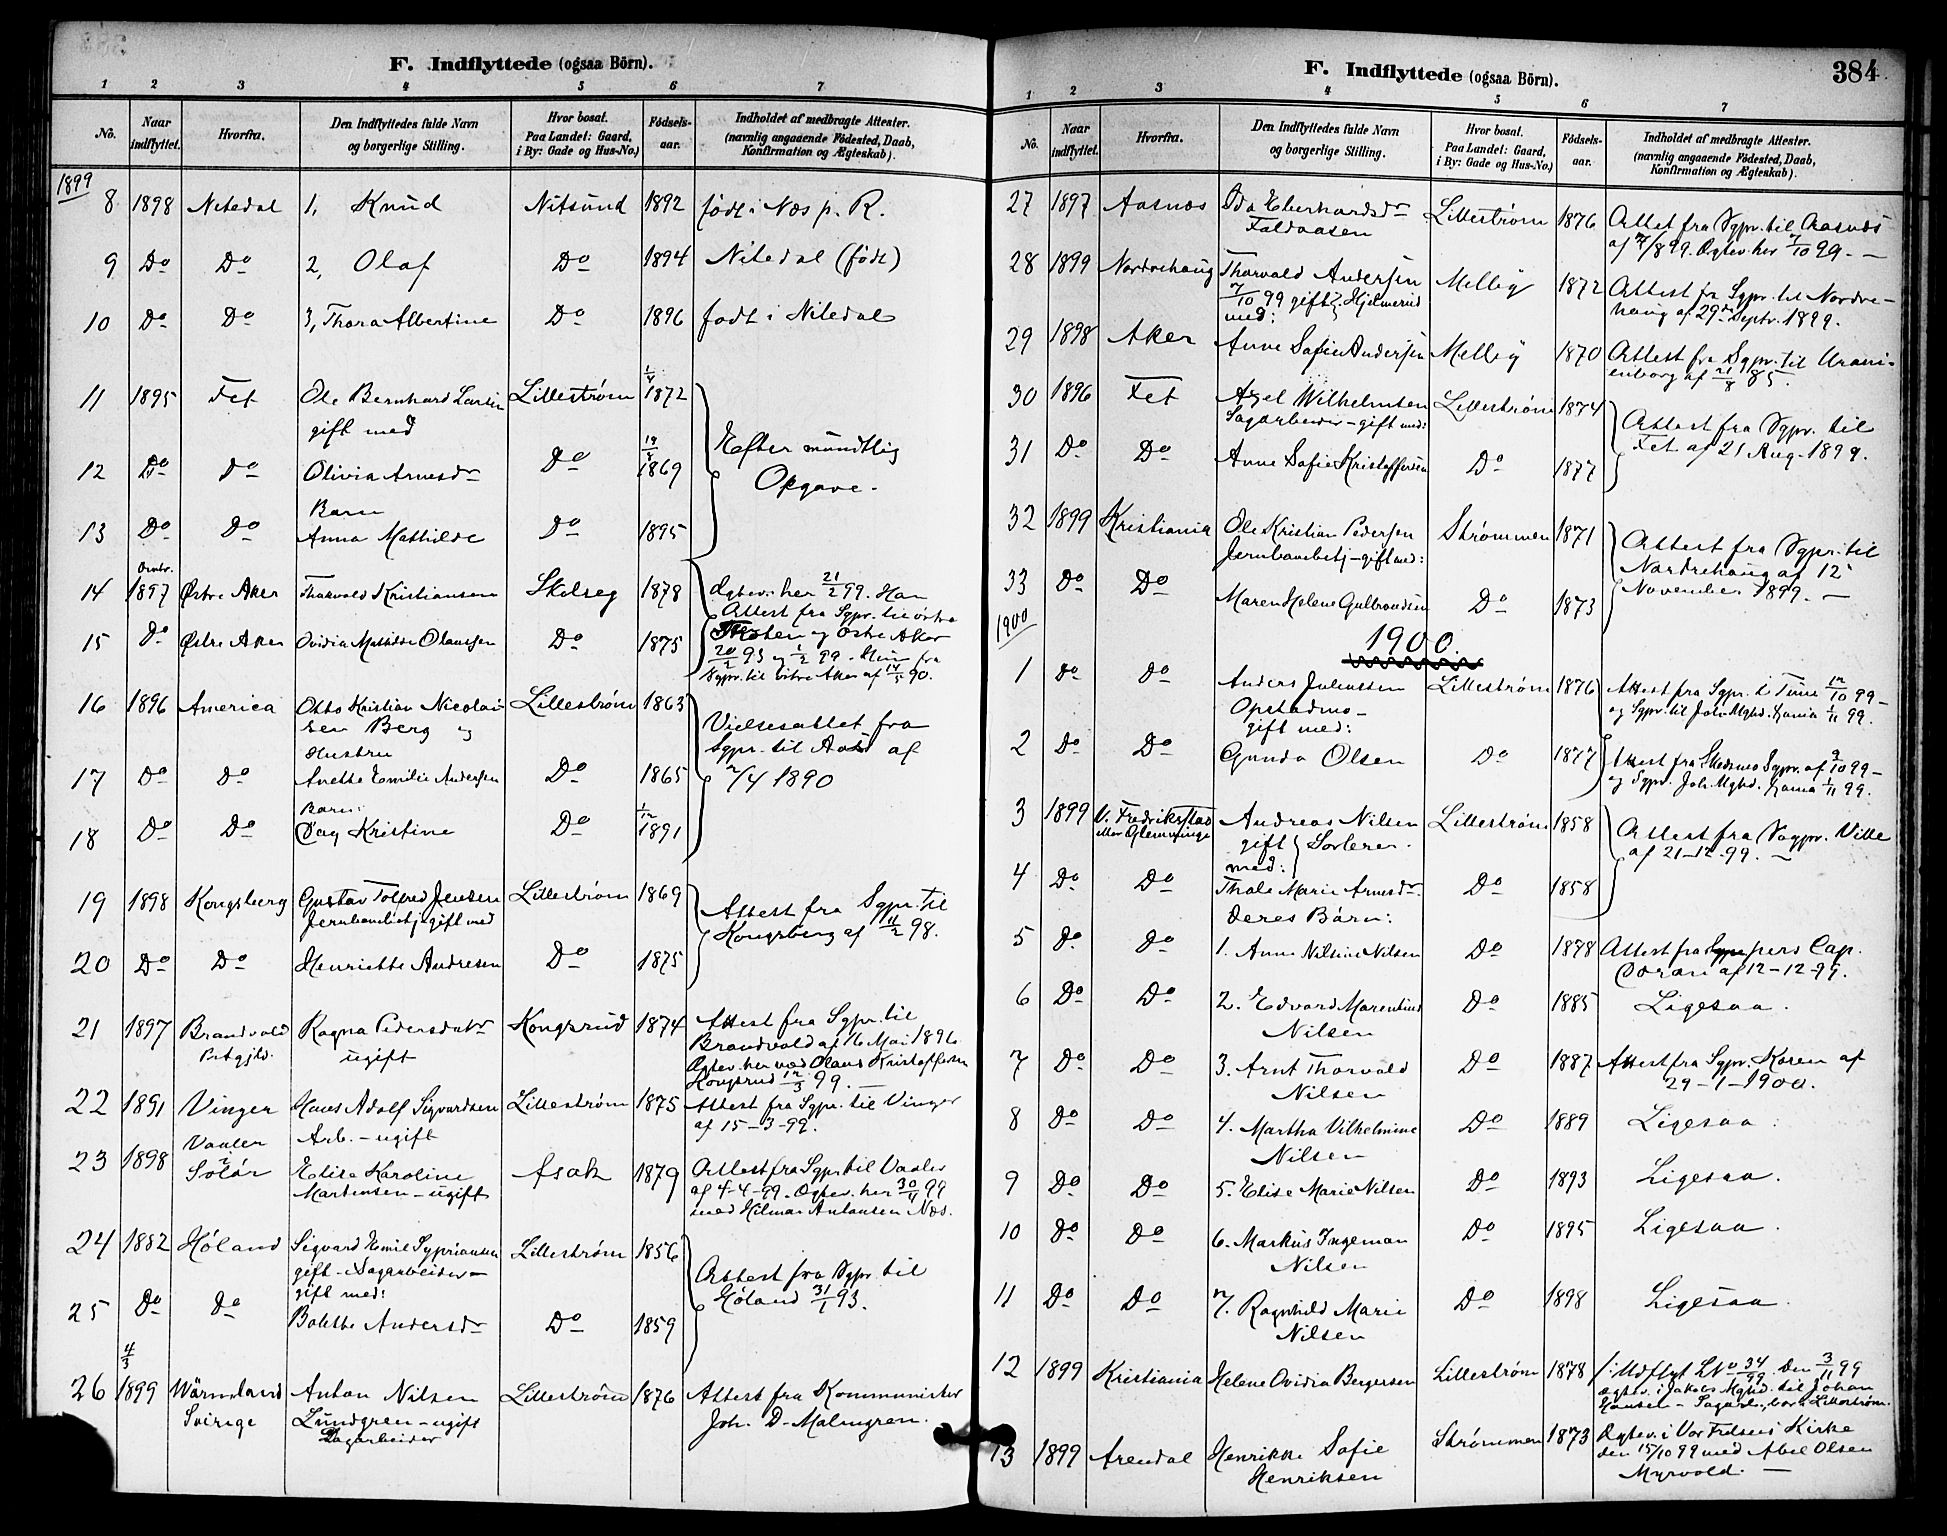 F. Indflyttede (ogsaa Börn).
1 2 3 4 5 6 7
No. Naar indflyttet. Hvorfra. Den Indflyttedes fulde Navn og borgerlige Stilling. Hvor bosat. Paa Landet: Gaard, i By: Gade og Hus-No.) Fødsels-aar. Indholdet af medbragte Attester. (navnlig angaaende Fødested, Daab, Konfirmation og Ægteskab).
1899
8 1898 Nitedal 1, Knud Nitsund 1892 født i Næs p. R.
9 Do Do 2, Olaf Do 1894 Nitedal (født)
10 Do Do 3, Thora Albertine Do 1896 født i Nitedal
11 1895 Fet Ole Bernhard Larsen Lillestrøm 1/4 1872
gift med
Efter mundtlig
12 Do Do Olivia Arnesdr Do 1869
Opgave.
Barn
13 Do Do Anna Mathilde Do 1895
14 1897 Østre Aker Thorvald Kristiansen Skelseg 1878 Ægtev. her 21/2 99. Han
Attest fra Sgpr. til østre
15 Do Østre Aker Ovidia Mathilde Olausen Do 1875 Toten og Østre Aker
20/2 93 og 1/2 99. Hun fra
Sgpr. til Østre Aker af 14/5 90.
16 1896 America Otto Kristian Nicolai Lillestrøm 1863
sen Berg og
Hustru
Vielsesattest fra
Sgpr. til Aas af
2/4 1890
17 Do Do Anette Emilie Andersen Do 1865
Barn:
18 Do Do Dag Kristine Do 1/12 1891
19 1898 Kongsberg Gustav Tolfred Jensen Lillestrøm 1869
Jernbanebetj. gift med
Attest fra Sgpr. til
Kongsberg af 11/2 98.
20 Do Do Henriette Andresen Do 1875
21 1897 Brandvold Ragna Pedersdatr Kongsrud 1874 Attest fra Sgpr. til
Prstgjld. ugift Brandvold af 16 Mai 1896
Ægtev. her med Olaus Kristoffersen
Kongsrud 12/3 99.
22 1891 Vinger Hans Adolf Sigvardsen Lillestrøm 1875 Attest fra Sgpr. til Vinger
Arb. - ugift af 15-3-99.
23 1898 Vaaler i Solør Elise Karoline Asak 1879 Attest fra Sgpr. til Vaaler
Martinsen - ugift af 4-4-99. Ægtev. her 30/4 99
med Hilmar Antonsen Næs.
24 1882 Høland Sigvard Emil Sypriansen Lillestrøm 1856
gift - Sagarbeider -
gift med:
Attest fra Sgpr. til
Høland 31/1 93.
25 Do Do Bolette Andersdr Do 1859
4/3
26 1899 Wärmland Anton Nilsen Lillestrøm 1876 Attest fra Kommunister
Sverige Lundgren - ugift Joh. D. Malmgren.
Sagarbeider
F. Indflyttede (ogsaa Börn).
384
1 2 3 4 5 6 7
No. Naar indflyttet. Hvorfra. Den Indflyttedes fulde Navn og borgerlige Stilling. Hvor bosat. Paa Landet: Gaard, i By: Gade og Hus-No.) Fødsels-aar. Indholdet af medbragte Attester. (navnlig angaaende Fødested, Daab, Konfirmation og Ægteskab).
27 1897 Aasnæs Ida Eberhardsdr Lillestrøm 1876 Attest fra Sgpr. til Aasnæs
Faldaasen af 7/8 99. Ægtev. her 7/10 99.
28 1899 Nordrehaug Thorvald Andersen Melby 1872 Attest fr Sgpr. til Nordre-
7/10 99 gift Hjelmerud haug af 29de Septr. 1899.
med:
29 1898 Aker Anne Sofie Andersen Melby 1870 Attest fra Sgpr. til Urani-
enborg af 21/8 85.
30 1896 Fet Axel Wilhelmsen Lillestrøm 1874
Sagarbeider - gift med:
Attest fra Sgpr. til
Fet af 21 Aug. 1899.
31 Do Do Anne Sofie Kristoffersen Do 1877
32 1899 Kristiania Ole Kristian Pedersen Strømmen 1871
Jernbanebetj - gift med:
Attest fra Sgpr. til
Nordrehaug af 12
November 1899.
33 Do Do Maren Helene Gulbrandsen Do 1873
1900
1900.
1 Do Do Anders Julenssen Lillestrøm 1876 Attest fra Sgpr. i Tune 12/10 99 -
Opstadmo - og Sgpr. til Joh. Mghd. Xania 1/11 99.
gift med:
2 Do Do Gunda Olsen Do 1877 Attest fra Skedsmo Sgpr. af 9/10 99 -
og Sgpr. Joh. Mghd. Xania 1/11 99.
3 1899 V. Fredrikstad Andreas Nilsen Lillestrøm 1858
eller Glemminge gift Sorterer.
med:
Attest fra Sogpr. Ville
af 21-12-99.
4 Do Do Thale Marie Arnesdr. Do 1858
Deres Børn:
5 Do Do 1. Anne Nilsine Nilsen Do 1878 Attest fra pers Cap.
af 12-12-99.
6 Do Do 2. Edvard Marentius Do 1885 Ligesaa.
Nilsen
7 Do Do 3. Arnt Thorvald Do 1887 Attest fra Sgpr. Koren af
Nilsen 29-1-1900.
8 Do Do 4. Martha Vilhelmine Do 1889 Ligesaa.
Nilsen
9 Do Do 5. Elise Marie Nilsen Do 1893 Ligesaa.
10 Do Do 6. Markus Ingeman Do 1895 Ligesaa.
Nilsen
11 Do Do 7. Ragnhild Marie Do 1898 Ligesaa.
Nilsen
12 1899 Kristiania Helene Ovidia Bergersen Lillestrøm 1878 Udflyt LNo 34/99. Den 3/11 99
ægtev. i Jakobs Mghd. til Johan
Hansen - Sagarb., bor i Lillestrøm.
13 1899 Arendal Henrikke Sofie Strømmen 1873 Ægtev. i Vor Frelsers Kirke
Henriksen den 15/10 99 med Abel Olsen
Myrvold.